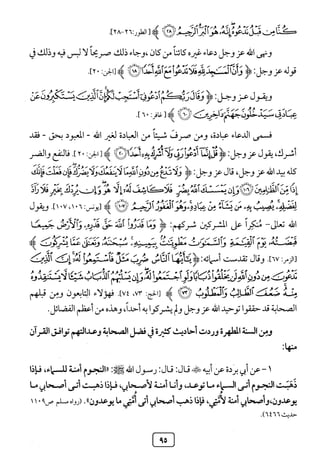 كُنَّا مِن قَبْلُ نَدْعُوهُ إِنَّهُ هُوَ الْبَرُّ الرَّحِيمُ ﴿٢٨﴾ [الطور: ٢٦-٢٨].
ونهى الله عز وجل دعاء غيره كائناً من كان، وجاء ذلك صريحاً لا لبس فيه وذلك في
قوله عز وجل: ﴿ وَأَنَّ الْمَسَاجِدَ لِلَّهِ فَلَا تَدْعُوا مَعَ اللَّهِ أَحَدًا ﴿١٨﴾ [الجن: ٢٠].
ويقول عز وجل: ﴿ وَقَالَ رَبُّكُمُ ادْعُونِي أَسْتَجِبْ لَكُمْ إِنَّ الَّذِينَ يَسْتَكْبِرُونَ عَنْ
عِبَادَتِي سَيَدْخُلُونَ جَهَنَّمَ دَاخِرِينَ ﴿٦٠﴾ [غافر: ٦٠].
فسمى الدعاء عبادة، ومن صرف شيئاً من العبادة لغير الله - المعبود بحق - فقد
أشرك، يقول عز وجل: ﴿ قُلْ إِنَّمَا أَدْعُو رَبِّي وَلَا أُشْرِكُ بِهِ أَحَدًا ﴿٢٠﴾ [الجن: ٢٠]. فالنفع والضر
كله بيد الله عز وجل، قال عز وجل: ﴿ وَلَا تَدْعُ مِن دُونِ اللَّهِ مَا لَا يَنفَعُكَ وَلَا يَضُرُّكَ فَإِن فَعَلْتَ فَإِنَّكَ
إِذًا مِّنَ الظَّالِمِينَ ﴿١٠٦﴾ وَإِن يَمْسَسْكَ اللَّهُ بِضُرٍّ فَلَا كَاشِفَ لَهُ إِلَّا هُوَ وَإِن يُرِدْكَ بِخَيْرٍ فَلَا رَادَّ
لِفَضْلِهِ يُصِيبُ بِهِ مَن يَشَاءُ مِنْ عِبَادِهِ وَهُوَ الْغَفُورُ الرَّحِيمُ ﴿١٠٧﴾ [يونس: ١٠٦، ١٠٧]. ويقول
الله تعالى- مُنكِراً على المشركين شركهم: ﴿ وَمَا قَدَرُوا اللَّهَ حَقَّ قَدْرِهِ وَالْأَرْضُ جَمِيعًا
قَبْضَتُهُ يَوْمَ الْقِيَامَةِ وَالسَّمَاوَاتُ مَطْوِيَّاتٌ بِيَمِينِهِ سُبْحَانَهُ وَتَعَالَى عَمَّا يُشْرِكُونَ ﴾
[الزمر: ٦٧]. وقال تقدست أسمائه: ﴿ يَا أَيُّهَا النَّاسُ ضُرِبَ مَثَلٌ فَاسْتَمِعُوا لَهُ إِنَّ الَّذِينَ
تَدْعُونَ مِن دُونِ اللَّهِ لَن يَخْلُقُوا ذُبَابًا وَلَوِ اجْتَمَعُوا لَهُ وَإِن يَسْلُبْهُمُ الذُّبَابُ شَيْئًا لَّا يَسْتَنقِذُوهُ
مِنْهُ ضَعُفَ الطَّالِبُ وَالْمَطْلُوبُ ﴿٧٣﴾ [الحج: ٧٣، ٧٤]. فهؤلاء التابعون ومن قبلهم
الصحابة قد حققوا توحيد الله عز وجل ولم يشركوا به أحداً، وهذه من أعظم الفضائل.
ومن السنة المطهرة وردت أحاديث كثيرة في فضل الصحابة وعدالتهم توافق القرآن
منها:
١- عن أبي بردة عن أبيه ﷺ قال: قال: رسول الله ﷺ: «النجوم أمنة للسماء، فإذا
ذهبت النجوم أتى السماء ما توعد، وأنا أمنة لأصحابي، فإذا ذهبت أتى أصحابي ما
يوعدون، وأصحابي أمنة لأمتي، فإذا ذهب أصحابي أتى أمتي ما يوعدون». (رواه مسلم ص١١٠٩
حديث ٦٤٦٦).
٩٥